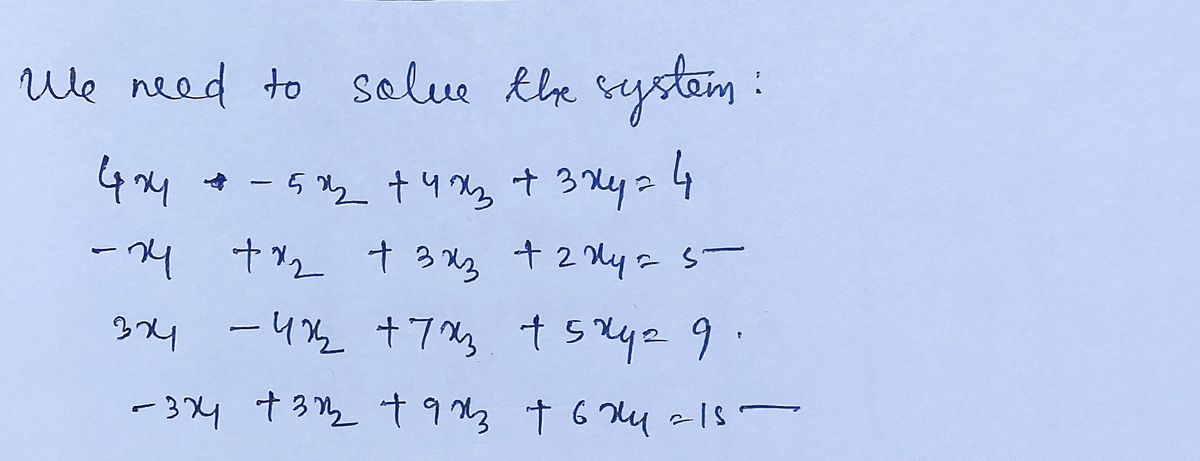 We need to solve the system :
4x₁ - 5x₂ + 4x₃ + 3x₄ = 4
-x₁ + x₂ + 3x₃ + 2x₄ = 5
3x₁ - 4x₂ + 7x₃ + 5x₄ = 9 .
-3x₁ + 3x₂ + 9x₃ + 6x₄ = 15